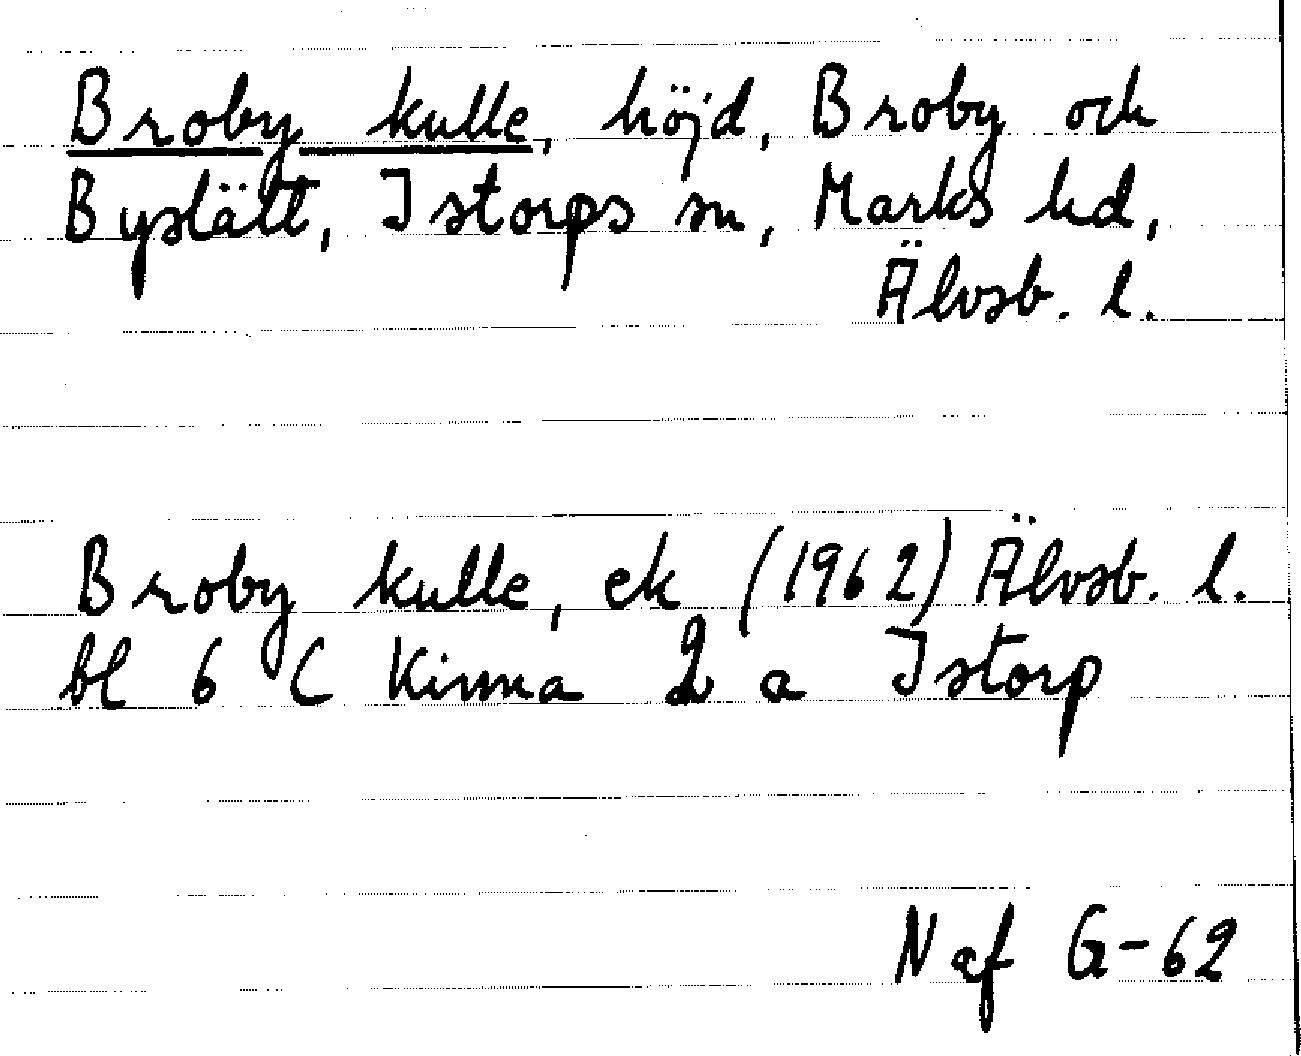 Broby kulle, höjd, Broby och
Byslätt, Istorps sn, Marks hd,
Älvsb. l.
Broby kulle, ek (1962) Älvsb. l.
bl 6 C Kinna 2 a Istorp
Naf G-62